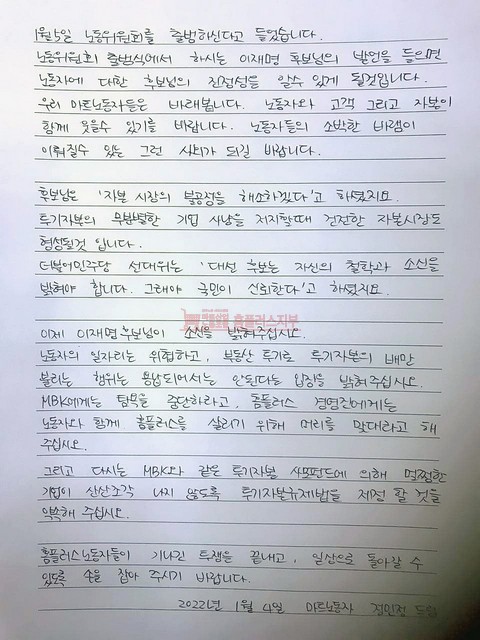 1월 5일 노동위원회를 출범하신다고 들었습니다.
노동위원회 출범식에서 하시는 이재명 후보님의 발언을 들으면
노동자에 대한 후보님의 진정성을 알수 있게 될것입니다.
우리 마트노동자들은 바래봅니다. 노동자와 고객 그리고 자본이
함께 웃을수 있기를 바랍니다. 노동자들의 소박한 바램이
이뤄질수 있는 그런 사회가 되길 바랍니다.
후보님은 '자본 시장의 불공정을 해소하겠다'고 하셨지요.
투기자본의 무분별한 기업 사냥을 저지할때 건전한 자본시장도
형성될것 입니다.
더불어민주당 선대위는 '대선 후보는 자신의 철학과 소신을
밝혀야 합니다. 그래야 국민이 신뢰한다'고 하셨지요.
홈플러스지부
이제 이재명후보님이 소신을 밝혀주십시오.
노동자의 일자리는 위협하고, 부동산 투기로 투기자본의 배만
불리는 행위는 용납되어서는 안된다는 입장을 밝혀주십시오.
MBK에게는 탐욕을 중단하라고, 홈플러스 경영진에게는
노동자와 함께 홈플러스를 살리기 위해 머리를 맞대라고 해
주십시오.
그리고 다시는 MBK와 같은 투기자본 사모펀드에 의해 멀쩡한
기업이 산산조각 나지 않도록 투기자본규제법을 제정 할 것을
약속해 주십시오.
홈플러스노동자들이 기나긴 투쟁을 끝내고, 일상으로 돌아갈 수
있도록 손을 잡아 주시기 바랍니다.
2022년 1월 4일 마트노동자 정민정 드림